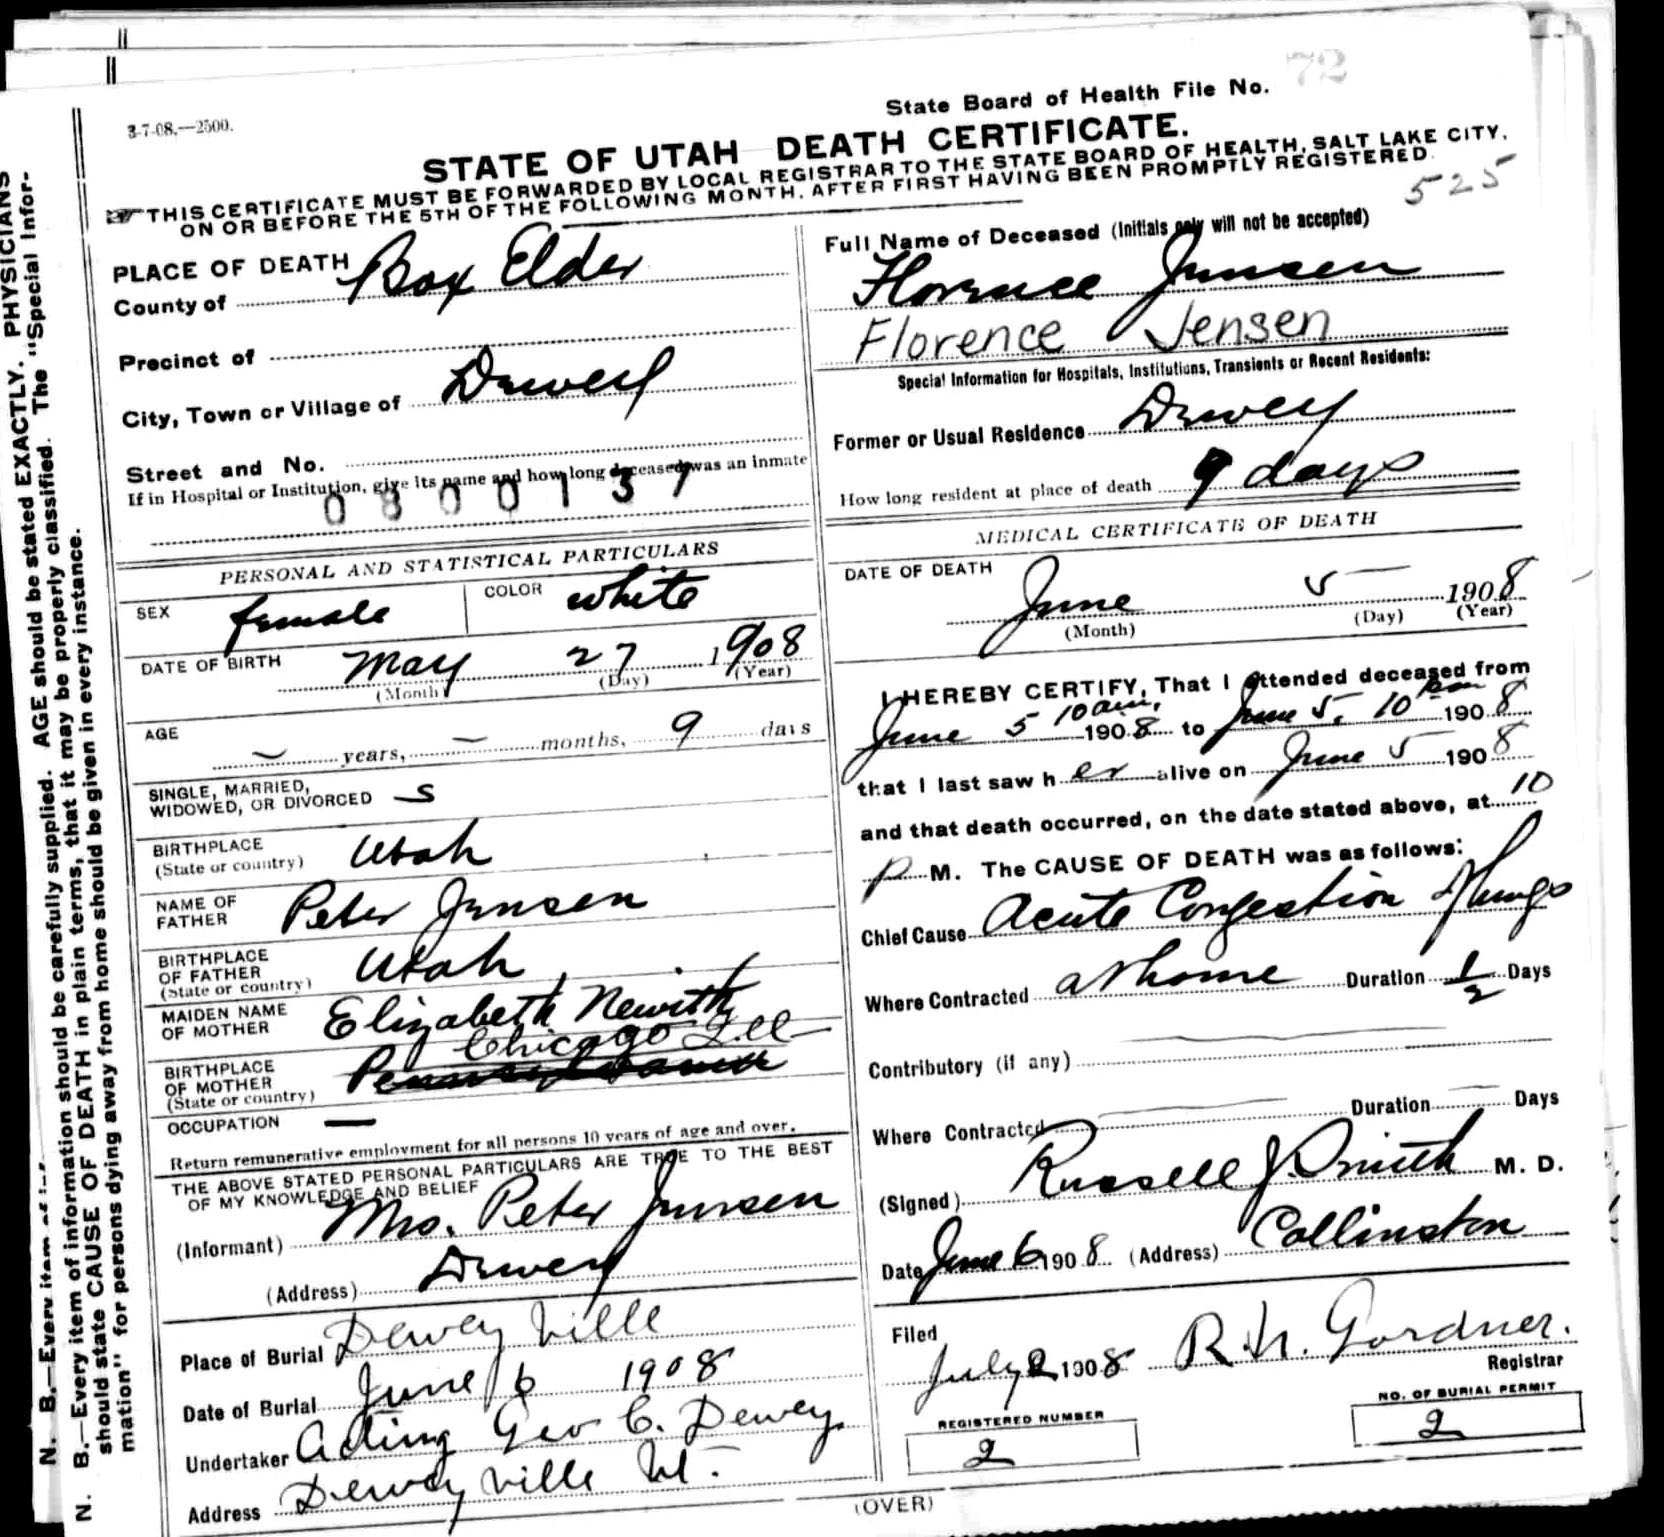 72
3-7-08.—2500.
State Board of Health File No.
STATE OF UTAH DEATH CERTIFICATE.
THIS CERTIFICATE MUST BE FORWARDED BY LOCAL REGISTRAR TO THE STATE BOARD OF HEALTH, SALT LAKE CITY,
ON OR BEFORE THE 5TH OF THE FOLLOWING MONTH, AFTER FIRST HAVING BEEN PROMPTLY REGISTERED.
525
PLACE OF DEATH
County of Box Elder
Precinct of
City, Town or Village of Dewey
Street and No.
If in Hospital or Institution, give its name and how long deceased was an inmate
0800137
PERSONAL AND STATISTICAL PARTICULARS
SEX female COLOR white
DATE OF BIRTH May 27 1908
(Month) (Day) (Year)
AGE
— years, — months, 9 days
SINGLE, MARRIED,
WIDOWED, OR DIVORCED S
BIRTHPLACE
(State or country) Utah
NAME OF
FATHER Peter Jensen
BIRTHPLACE
OF FATHER
(State or country) Utah
MAIDEN NAME
OF MOTHER Elizabeth Newith
Chicago Ill
BIRTHPLACE
OF MOTHER
(State or country) Pennsylvania
OCCUPATION —
Return remunerative employment for all persons 10 years of age and over.
THE ABOVE STATED PERSONAL PARTICULARS ARE TRUE TO THE BEST
OF MY KNOWLEDGE AND BELIEF
(Informant) Mrs. Peter Jensen
(Address) Dewey
Place of Burial Deweyville
Date of Burial June 6 1908
Undertaker Acting Geo C. Dewey
Address Deweyville Ut.
Full Name of Deceased (Initials only will not be accepted)
Florence Jensen
Florence Jensen
Special Information for Hospitals, Institutions, Transients or Recent Residents:
Former or Usual Residence Dewey
How long resident at place of death 9 days
MEDICAL CERTIFICATE OF DEATH
DATE OF DEATH
June 5 1908
(Month) (Day) (Year)
I HEREBY CERTIFY, That I attended deceased from
June 5 10 am, 1908 to June 5. 10 pm 1908
that I last saw her alive on June 5 1908
and that death occurred, on the date stated above, at 10
P M. The CAUSE OF DEATH was as follows:
Chief Cause Acute Congestion of lungs
Where Contracted at home Duration 1/2 Days
Contributory (if any)
Where Contracted Duration Days
(Signed) Russell J. Smith M. D.
Date June 6 1908 (Address) Collinston
Filed
July 2 1908 R. N. Gardner.
Registrar
REGISTERED NUMBER
2
NO. OF BURIAL PERMIT
2
(OVER)
N. B.—Every item of information should be carefully supplied. AGE should be stated EXACTLY. PHYSICIANS
should state CAUSE OF DEATH in plain terms, that it may be properly classified. The "Special Infor-
mation" for persons dying away from home should be given in every instance.
N. B.—Every item of